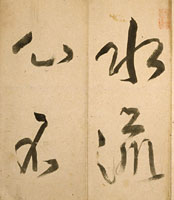 水流
心不